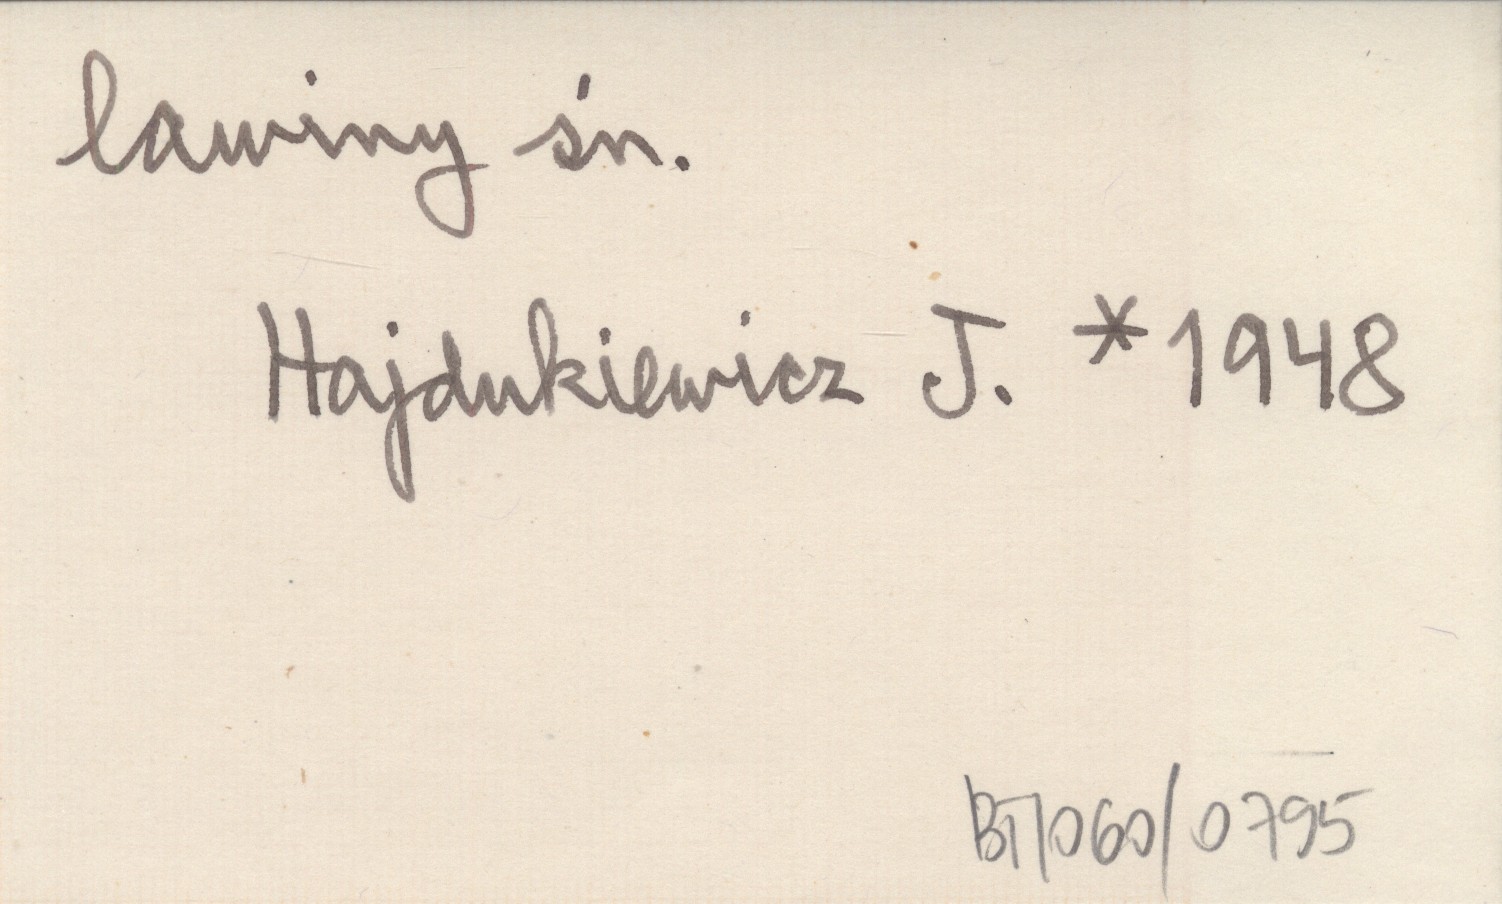 lawiny śn.
Hajdukiewicz J. *1948
BT/060/0795